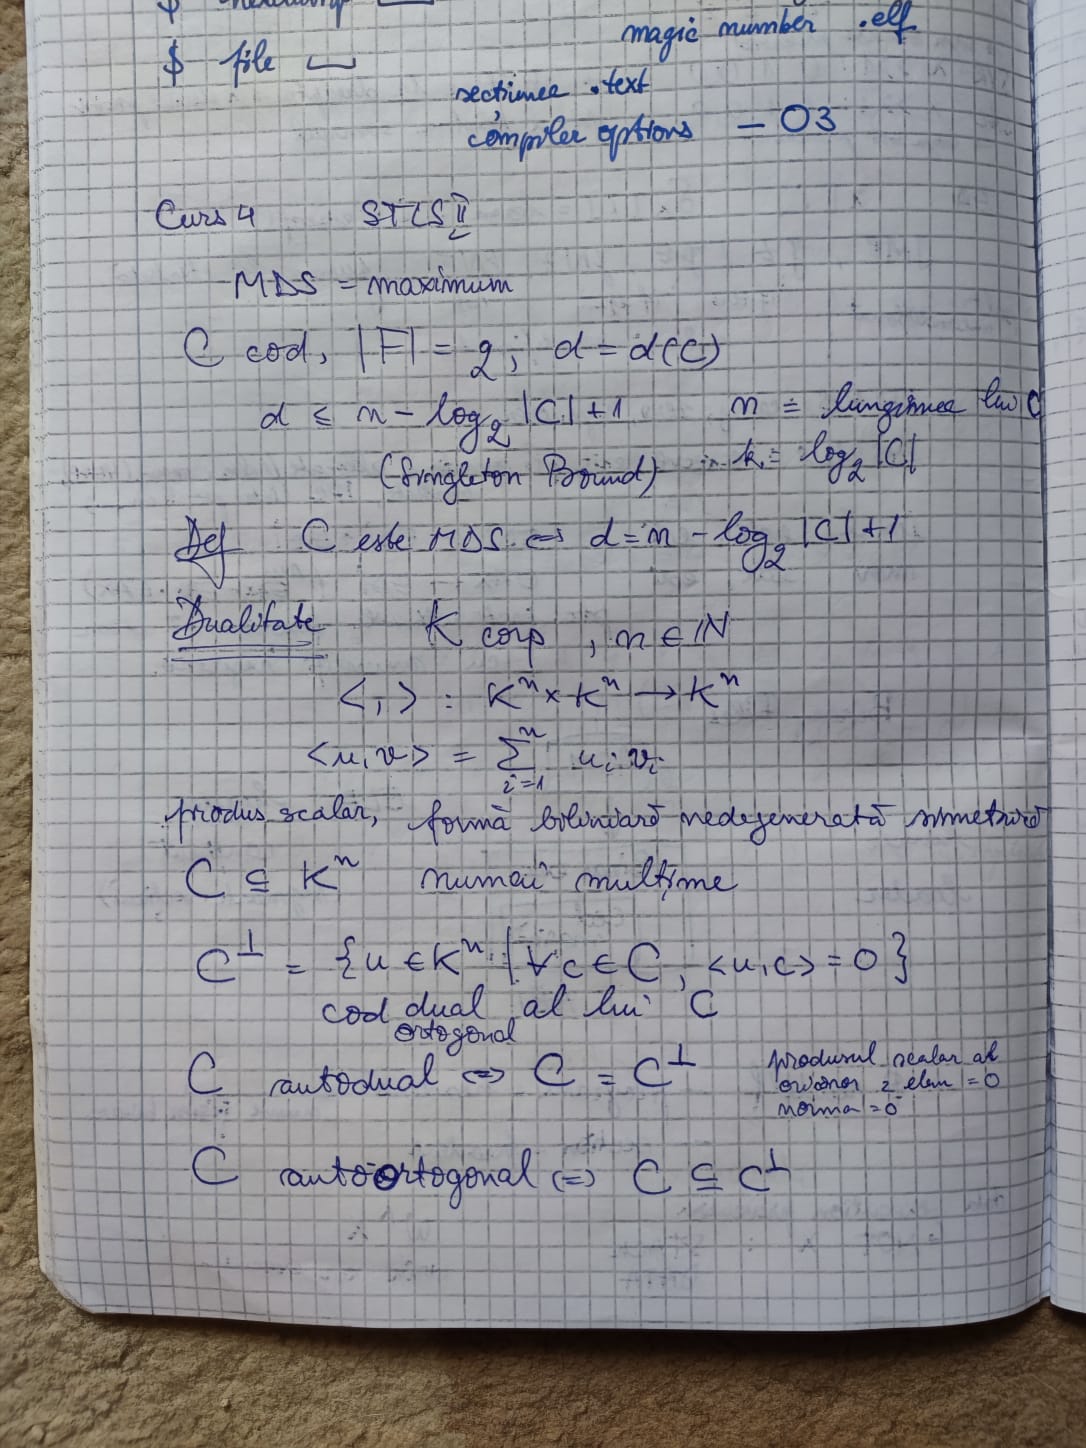 $ hexdump
$ file ⎵ magic number .elf
secțiunea .text
compiler options – O3
Curs 4 STCS II
– MDS = maximum
C cod, |F| = q; d = d(C)
d ≤ n – log_q |C| + 1 n = lungimea lui C
(Singleton Bound) k = log_q |C|
Def C este MDS ⇔ d = n – log_q |C| + 1
Dualitate K corp, n ∈ ℕ
<,> : K^n × K^n → K^n
<u,v> = ∑_{i=1}^n u_i v_i
produs scalar, formă biliniară nedegenerată simetrică
C ⊆ K^n numai mulțime
C^⊥ = {u ∈ K^n | ∀ c ∈ C, <u,c> = 0}
cod dual al lui C
ortogonal
C autodual ⇔ C = C^⊥ produsul scalar al
oricăror 2 elem = 0
norma = 0
C autoortogonal ⇔ C ⊆ C^⊥